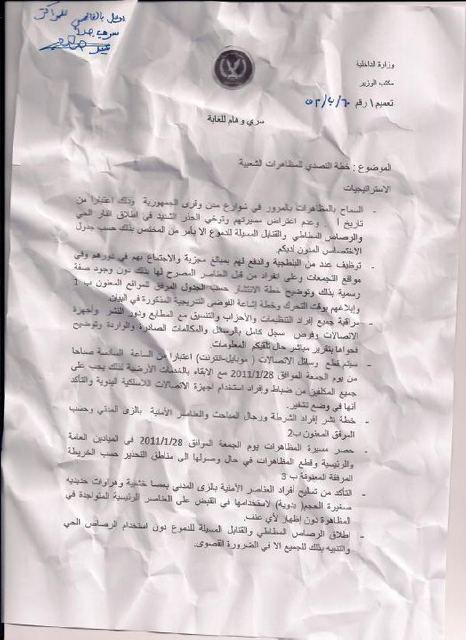 ارسل بالفاكس للمراكز
سري جداً
وزارة الداخلية
مكتب الوزير
تعميم \ رقم ٦٠/ب/٥٢
سري وهام للغاية
الموضوع : خطة التصدي للمظاهرات الشعبية
الاستراتيجيات
- السماح بالمظاهرات بالمرور في شوارع مدن وقرى الجمهورية وذلك اعتبارا من
تاريخ \ وعدم اعتراض مسيرتهم وتوخي الحذر الشديد في اطلاق النار الحي
والرصاص المطاطي والقنابل المسيلة للدموع الا بأمر من المختص بذلك حسب جدول
الاختصاص المدون لديكم
- توظيف عدد من البلطجية والدفع لهم بمبالغ مجزية والاجتماع بهم في دورهم وفي
مواقع التجمعات وعلى انفراد من قبل العناصر المصرح لها بذلك دون وجود صفة
رسمية بذلك وتوضيح خطة الانتشار حسب الجدول الموفق للمواقع المعنون ب 1
وإبلاغهم بوقت التحرك وخطة إشاعة الفوضى التدريجية المذكورة في البيان.
- مراقبة جميع إفراد التنظيمات والأحزاب والتنسيق مع المطابع ودور النشر وأجهزة
الاتصالات وفرض سجل كامل بالرسائل والمكالمات الصادرة والواردة وتوضيح
فحواها بتقرير مباشر حال تلقيكم المعلومات.
- سيتم قطع وسائل الاتصالات ( موبايل-انترنت) اعتبارا من الساعة السادسة صباحا
من يوم الجمعة الموافق 2011/1/28 مع الإبقاء بالخدمات الأرضية لذلك يجب على
جميع المكلفين من ضباط وإفراد استخدام أجهزة الاتصالات اللاسلكية اليدوية والتأكد
أنها في وضع تشفير.
- خطة نشر إفراد الشرطة ورجال المباحث والعناصر الأمنية بالزى المدني وحسب
المرفق المعنون ب2
- حصر مسيرة المظاهرات يوم الجمعة الموافق 2011/1/28 في الميادين العامة
والرئيسية وقطع المظاهرات في حال وصولها الى مناطق التحذير حسب الخريطة
المرفقة المعنونة ب 3
- التأكد من تسليح أفراد العناصر الأمنية بالزى المدني بعصا خشبية وهراوات حديديه
صغيرة الحجم( يدوية) لاستخدامها في القبض على العناصر الرئيسية المتواجدة في
المظاهرة دون إظهار لأي عنف.
- اطلاق الرصاص المطاطي والقنابل المسيلة للدموع دون استخدام الرصاص الحي
والتنبيه بذلك للجميع الا في الضرورة القصوى.